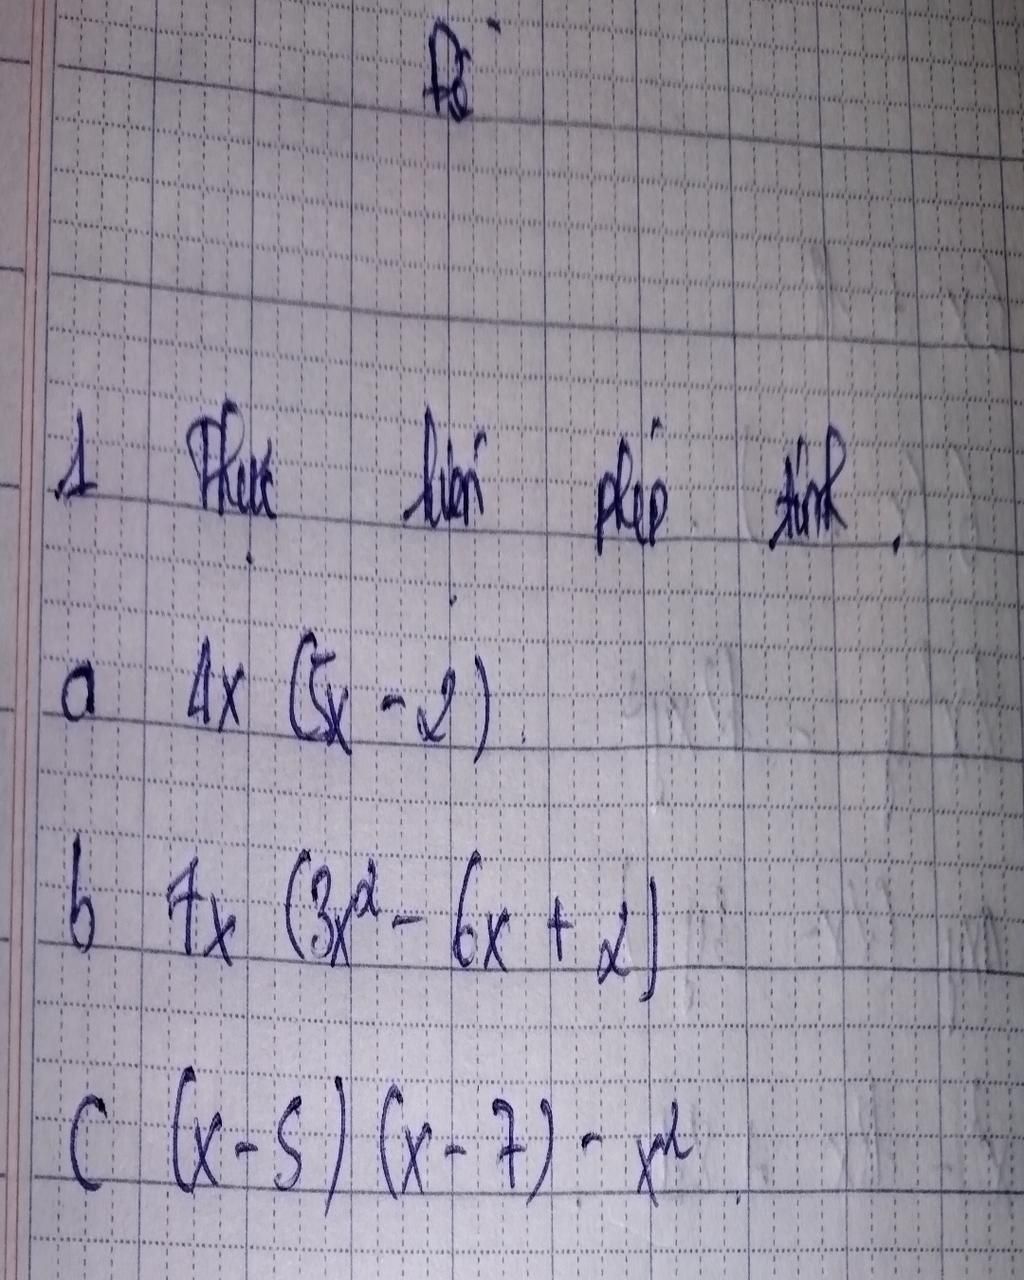 Đề
1 Thực hiện phép tính.
a 4x (5x - 2)
b 7x (3x² - 6x + 2)
c (x - 5) (x - 7) - x²